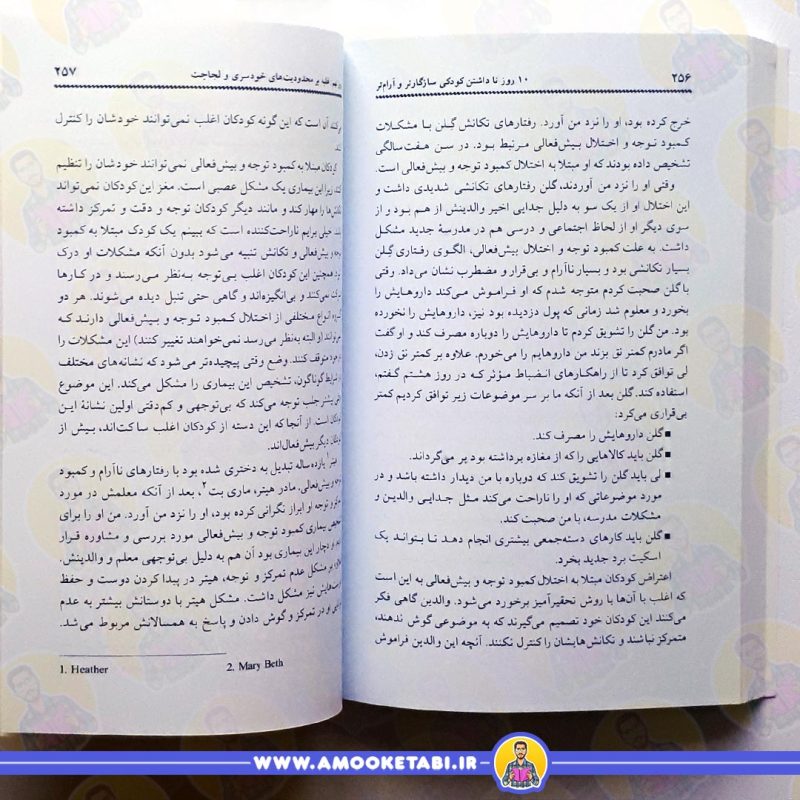 ۲۵۶
۱۰ روز تا داشتن کودکی سازگارتر و آرام‌تر
خرج کرده بود، او را نزد من آورد. رفتارهای تکانش گِلن با مشکلات
کمبود توجه و اختلال بیش‌فعالی مرتبط بود. در سن هفت‌سالگی
تشخیص داده بودند که او مبتلا به اختلال کمبود توجه و بیش‌فعالی است.
وقتی او را نزد من آوردند، گلن رفتارهای تکانشی شدیدی داشت و
این اختلال او از یک سو به دلیل جدایی اخیر والدینش از هم بود و از
سوی دیگر او از لحاظ اجتماعی و درسی هم در مدرسهٔ جدید مشکل
داشت. به علت کمبود توجه و اختلال بیش‌فعالی، الگوی رفتاری گِلن
بسیار تکانشی بود و بسیار ناآرام و بی‌قرار و مضطرب نشان می‌داد. وقتی
با گلن صحبت کردم متوجه شدم که او فراموش می‌کند داروهایش را
بخورد و معلوم شد زمانی که پول دزدیده بود نیز، داروهایش را نخورده
بود. من گلن را تشویق کردم تا داروهایش را دوباره مصرف کند و او گفت
اگر مادرم کمتر نق بزند من داروهایم را می‌خورم. علاوه بر کمتر نق زدن،
لی توافق کرد تا از راهکارهای انضباط مؤثر که در روز هشتم گفتم،
استفاده کند. گلن بعد از آنکه ما بر سر موضوعات زیر توافق کردیم کمتر
بی‌قراری می‌کرد:
■ گلن داروهایش را مصرف کند.
■ گلن باید کالاهایی را که از مغازه برداشته بود پر می‌گرداند.
■ لی باید گلن را تشویق کند که دوباره با من دیدار داشته باشد و در
مورد موضوعاتی که او را ناراحت می‌کند مثل جدایی والدین و
مشکلات مدرسه، با من صحبت کند.
■ گلن باید کارهای دسته‌جمعی بیشتری انجام دهد تا بتواند یک
اسکیت برد جدید بخرد.
اعتراض کودکان مبتلا به اختلال کمبود توجه و بیش‌فعالی به این است
که اغلب با آن‌ها با روش تحقیرآمیز برخورد می‌شود. والدین گاهی فکر
می‌کنند این کودکان خود تصمیم می‌گیرند که به موضوعی گوش ندهند،
متمرکز نباشند و تکانش‌هایشان را کنترل نکنند. آنچه این والدین فراموش
غلبه بر محدودیت‌های خودسری و لجاجت
۲۵۷
آن است که این گونه کودکان اغلب نمی‌توانند خودشان را کنترل
کودکان مبتلا به کمبود توجه و بیش‌فعالی نمی‌توانند خودشان را تنظیم
زیرا این بیماری یک مشکل عصبی است. مغز این کودکان نمی‌تواند
را مهار کند و مانند دیگر کودکان توجه و دقت و تمرکز داشته
خیلی برایم ناراحت‌کننده است که ببینم یک کودک مبتلا به کمبود
بیش‌فعالی و تکانش تنبیه می‌شود بدون آنکه مشکلات او درک
همچنین این کودکان اغلب بی‌توجه به‌نظر می‌رسند و در کارها
نمی‌کنند و بی‌انگیزه‌اند و گاهی حتی تنبل دیده می‌شوند. هر دو
انواع مختلفی از اختلال کمبود توجه و بیش‌فعالی دارند که
او البته به‌نظر می‌رسد نمی‌خواهند تغییر کنند) این مشکلات را
خود متوقف کنند. وضع وقتی پیچیده‌تر می‌شود که نشانه‌های مختلف
شرایط گوناگون، تشخیص این بیماری را مشکل می‌کند. این موضوع
بیشتر جلب توجه می‌کند که بی‌توجهی و کم‌دقتی اولین نشانهٔ این
است. از آنجا که این دسته از کودکان اغلب ساکت‌اند، بیش از
دیگر بیش‌فعال‌اند.
یازده ساله تبدیل به دختری شده بود با رفتارهای ناآرام و کمبود
و بیش‌فعالی. مادر هیتر، ماری بت۲، بعد از آنکه معلمش در مورد
توجه او ابراز نگرانی کرده بود، او را نزد من آورد. من او را برای
بیماری کمبود توجه و بیش‌فعالی مورد بررسی و مشاوره قرار
دچار این بیماری بود آن هم به دلیل بی‌توجهی معلم و والدینش.
بر مشکل عدم تمرکز و توجه، هیتر در پیدا کردن دوست و حفظ
نیز مشکل داشت. مشکل هیتر با دوستانش بیشتر به عدم
او در تمرکز و گوش دادن و پاسخ به همسالانش مربوط می‌شد.
1. Heather 2. Mary Beth
WWW.AMOOKETABI.IR